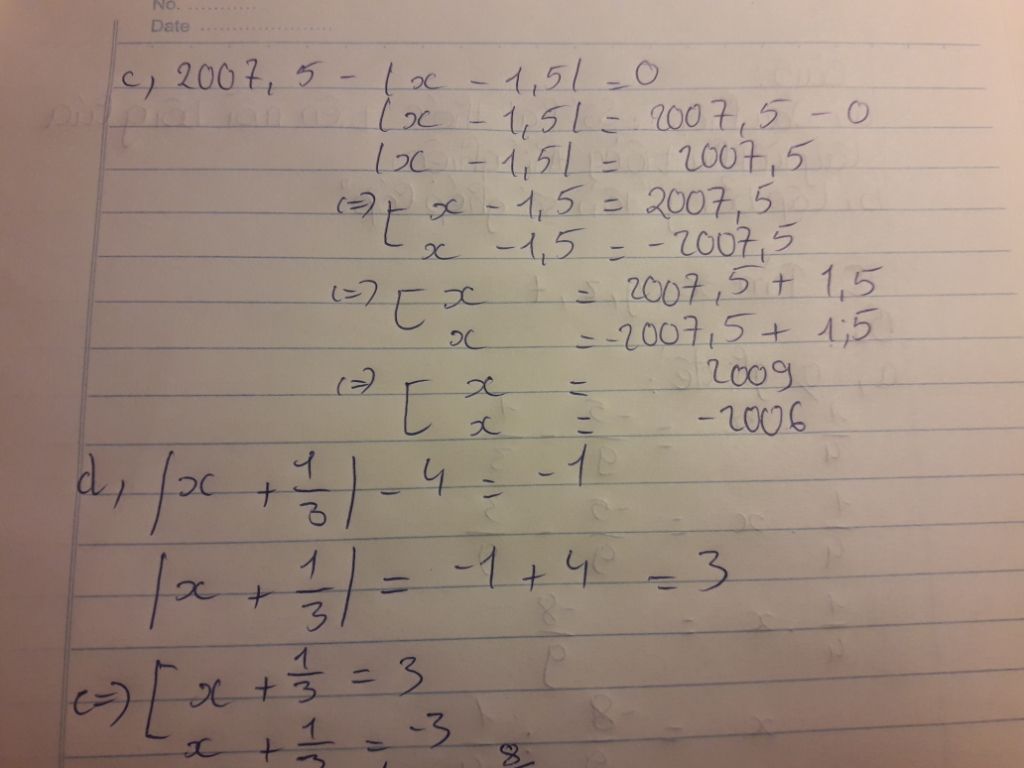 No. ...........
Date ........................
c, 2007,5 - |x - 1,5| = 0
|x - 1,5| = 2007,5 - 0
|x - 1,5| = 2007,5
(=) [ x - 1,5 = 2007,5
x - 1,5 = -2007,5
(=) [ x = 2007,5 + 1,5
x = -2007,5 + 1,5
(=) [ x = 2009
x = -2006
d, |x + 1/3| - 4 = -1
|x + 1/3| = -1 + 4 = 3
(=) [ x + 1/3 = 3
x + 1/3 = -3
8